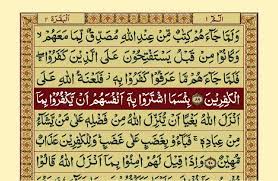 الٓمّٓ ١ البقرة ٢
وَلَمَّا جَآءَهُمْ كِتٰبٌ مِّنْ عِنْدِ اللّٰهِ مُصَدِّقٌ لِّمَا مَعَهُمْ ۙ
وَكَانُوْا مِنْ قَبْلُ يَسْتَفْتِحُوْنَ عَلَى الَّذِيْنَ كَفَرُوْا ۚ
فَلَمَّا جَآءَهُمْ مَّا عَرَفُوْا كَفَرُوْا بِهٖ ؗ فَلَعْنَةُ اللّٰهِ عَلَى
الْكٰفِرِيْنَ ۝٨٩ بِئْسَمَا اشْتَرَوْا بِهٖٓ اَنْفُسَهُمْ اَنْ يَّكْفُرُوْا بِمَآ
اَنْزَلَ اللّٰهُ بَغْيًا اَنْ يُّنَزِّلَ اللّٰهُ مِنْ فَضْلِهٖ عَلٰى مَنْ يَّشَآءُ
مِنْ عِبَادِهٖ ۚ فَبَآءُوْ بِغَضَبٍ عَلٰى غَضَبٍ ؕ وَلِلْكٰفِرِيْنَ عَذَابٌ
مُّهِيْنٌ ۝٩٠ وَاِذَا قِيْلَ لَهُمْ اٰمِنُوْا بِمَآ اَنْزَلَ اللّٰهُ قَالُوْا